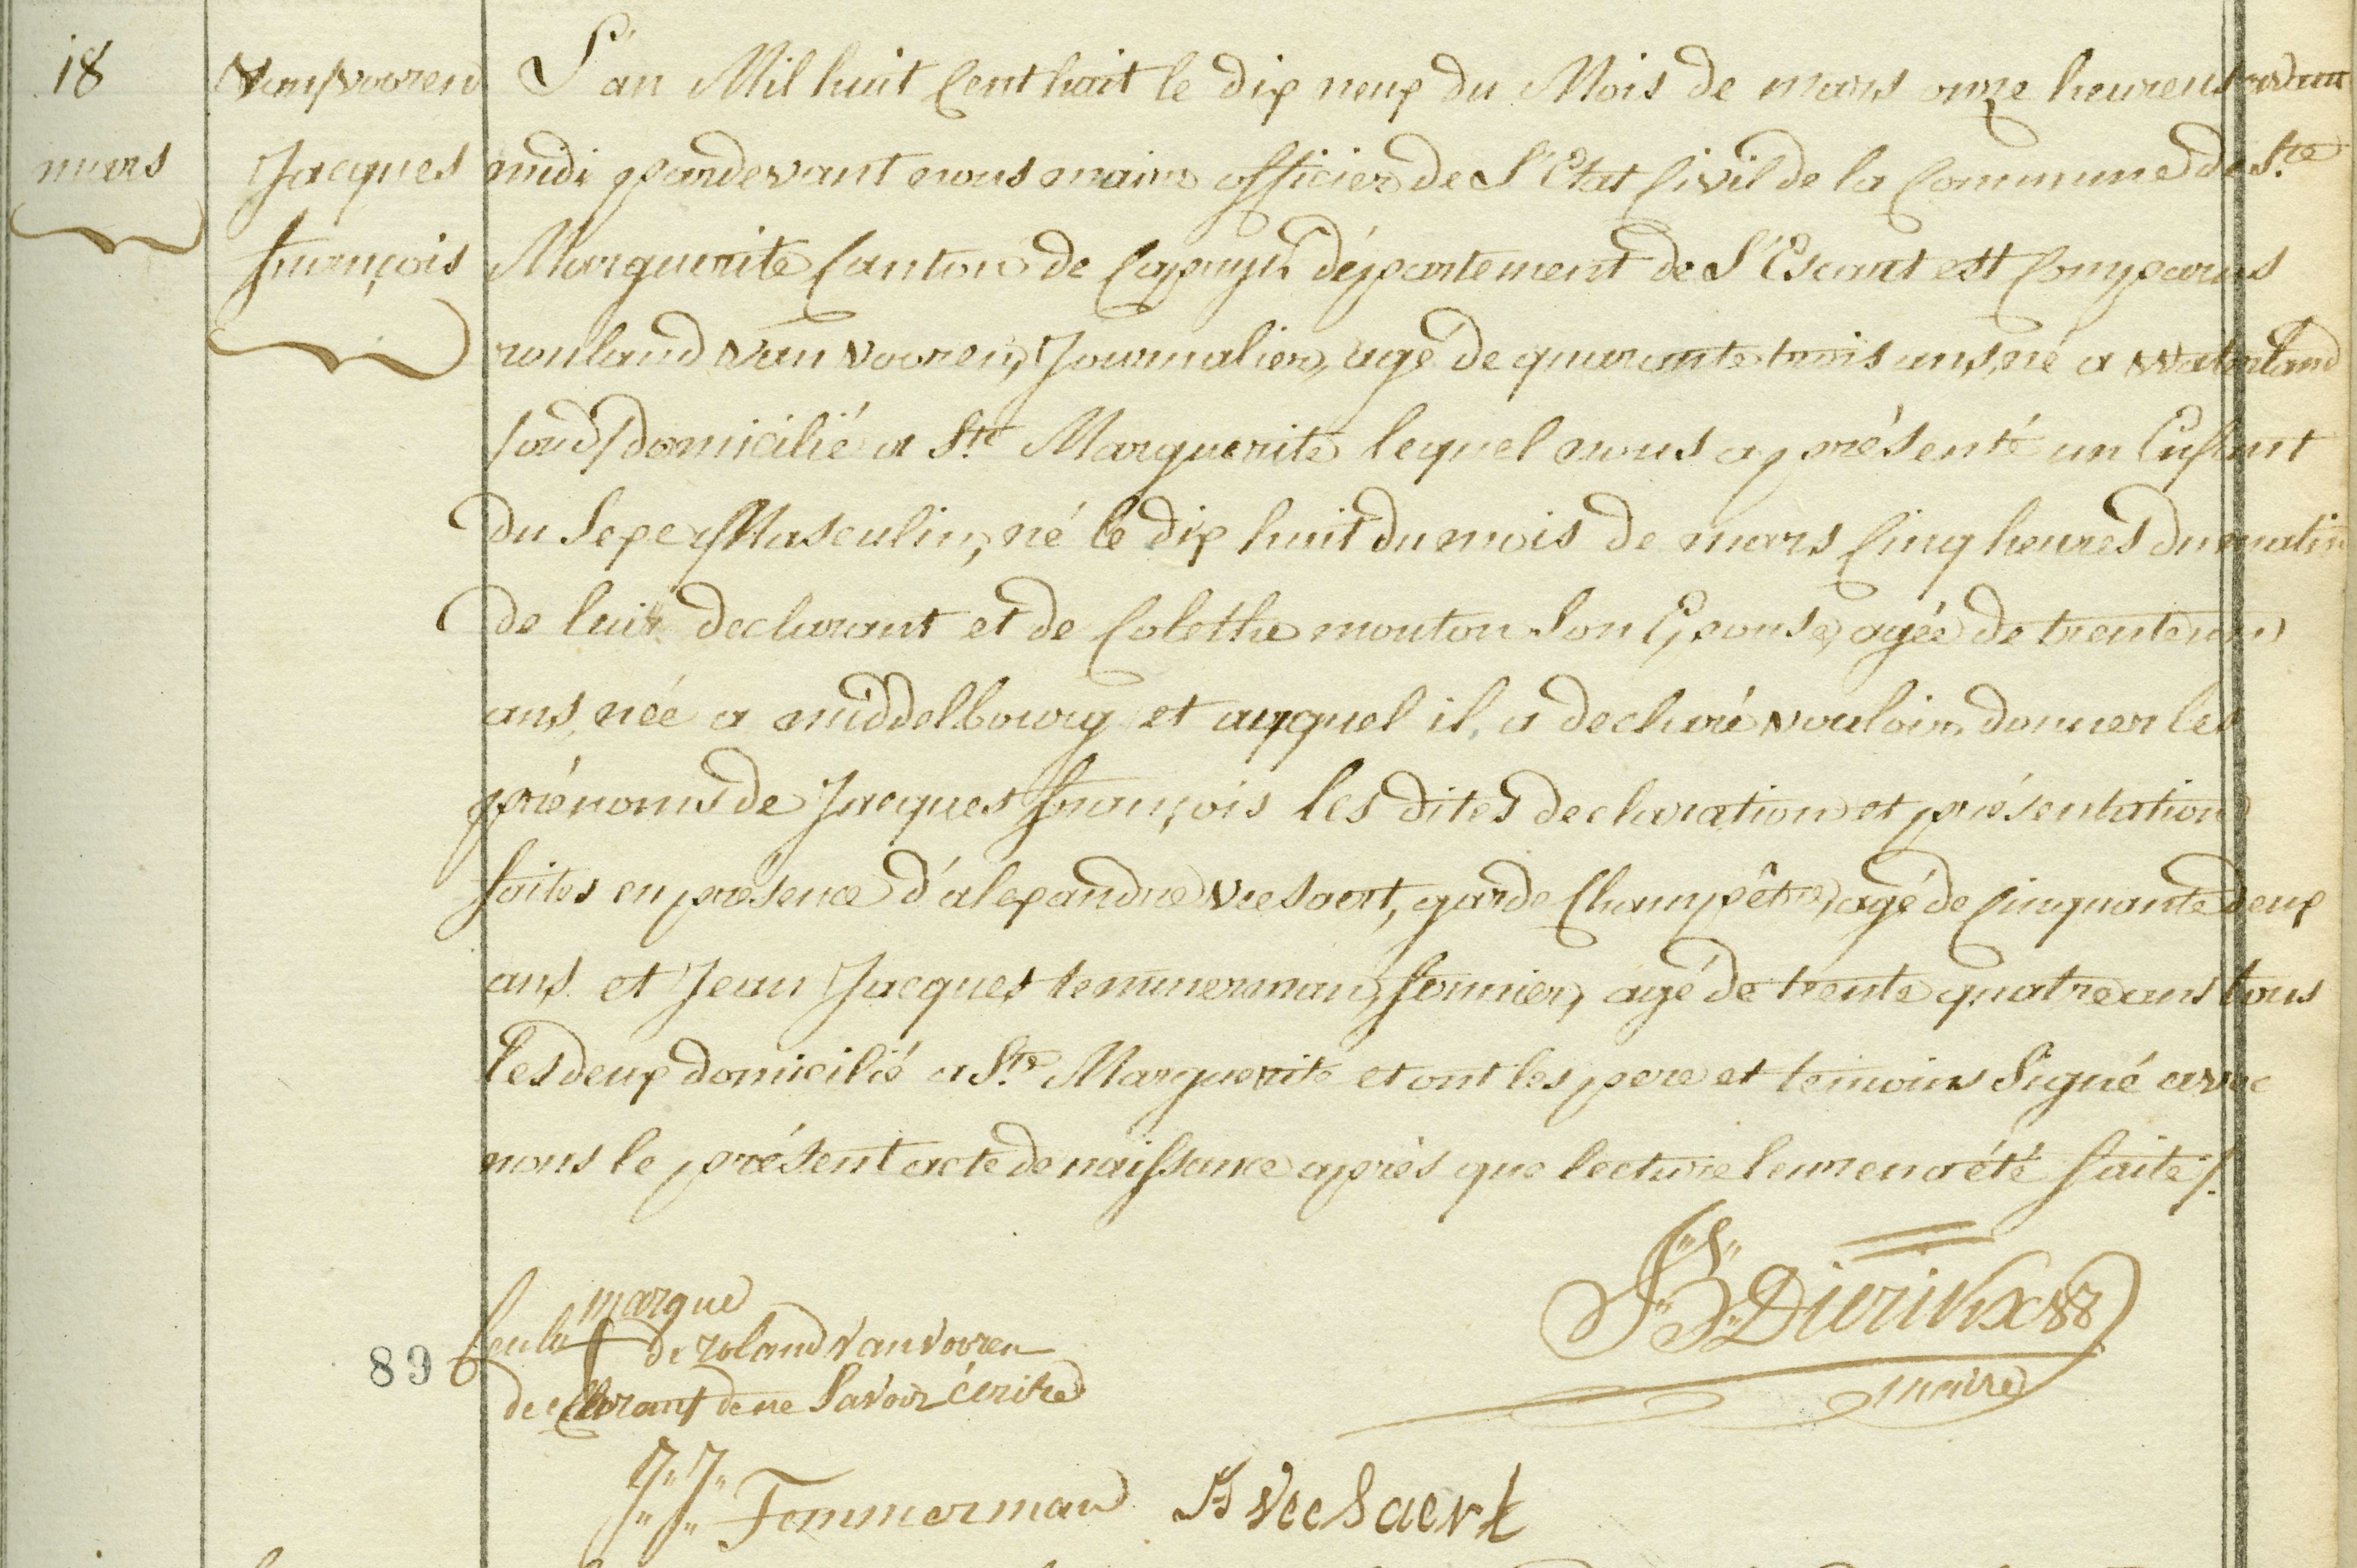 18
mars
Van Vooren
Jacques
françois
L'an Mil huit Cent huit le dix neuf du Mois de mars onze heures avant
midi pardevant nous maire officier de L'Etat Civil de la Commune de Ste
Marguerite Canton de Capryck département de L'Escaut est Comparus
rouland van vooren, Journalier, agé de quarante trois ans, né a Waterland
oud domicilié a Ste Marguerite lequel nous a présenté un Enfant
du Sexe Masculin, né le dix huit du mois de mars Cinq heures du matin
de lui declarant et de Colethe mouton Son Epouse, agée de trente un
ans, née a middelbourg et auquel il, a declaré vouloir donner les
prénoms de Jacques françois les dites declaration et présentation
faites en présence d'alexandre veesaert, garde Champêtre, agé de Cinquante deux
ans et Jean Jacques temmerman, fermier, agé de trente quatre ans tous
les deux domicilié a Ste Marguerite et ont les pere et temoins Signé avec
nous le présent acte de naissance après que lecture leur en a été faite /.
marque
de roland Van Vooren
declarant de ne Savoir écrire
89
maire
J: J: Temmerman
A veesaert